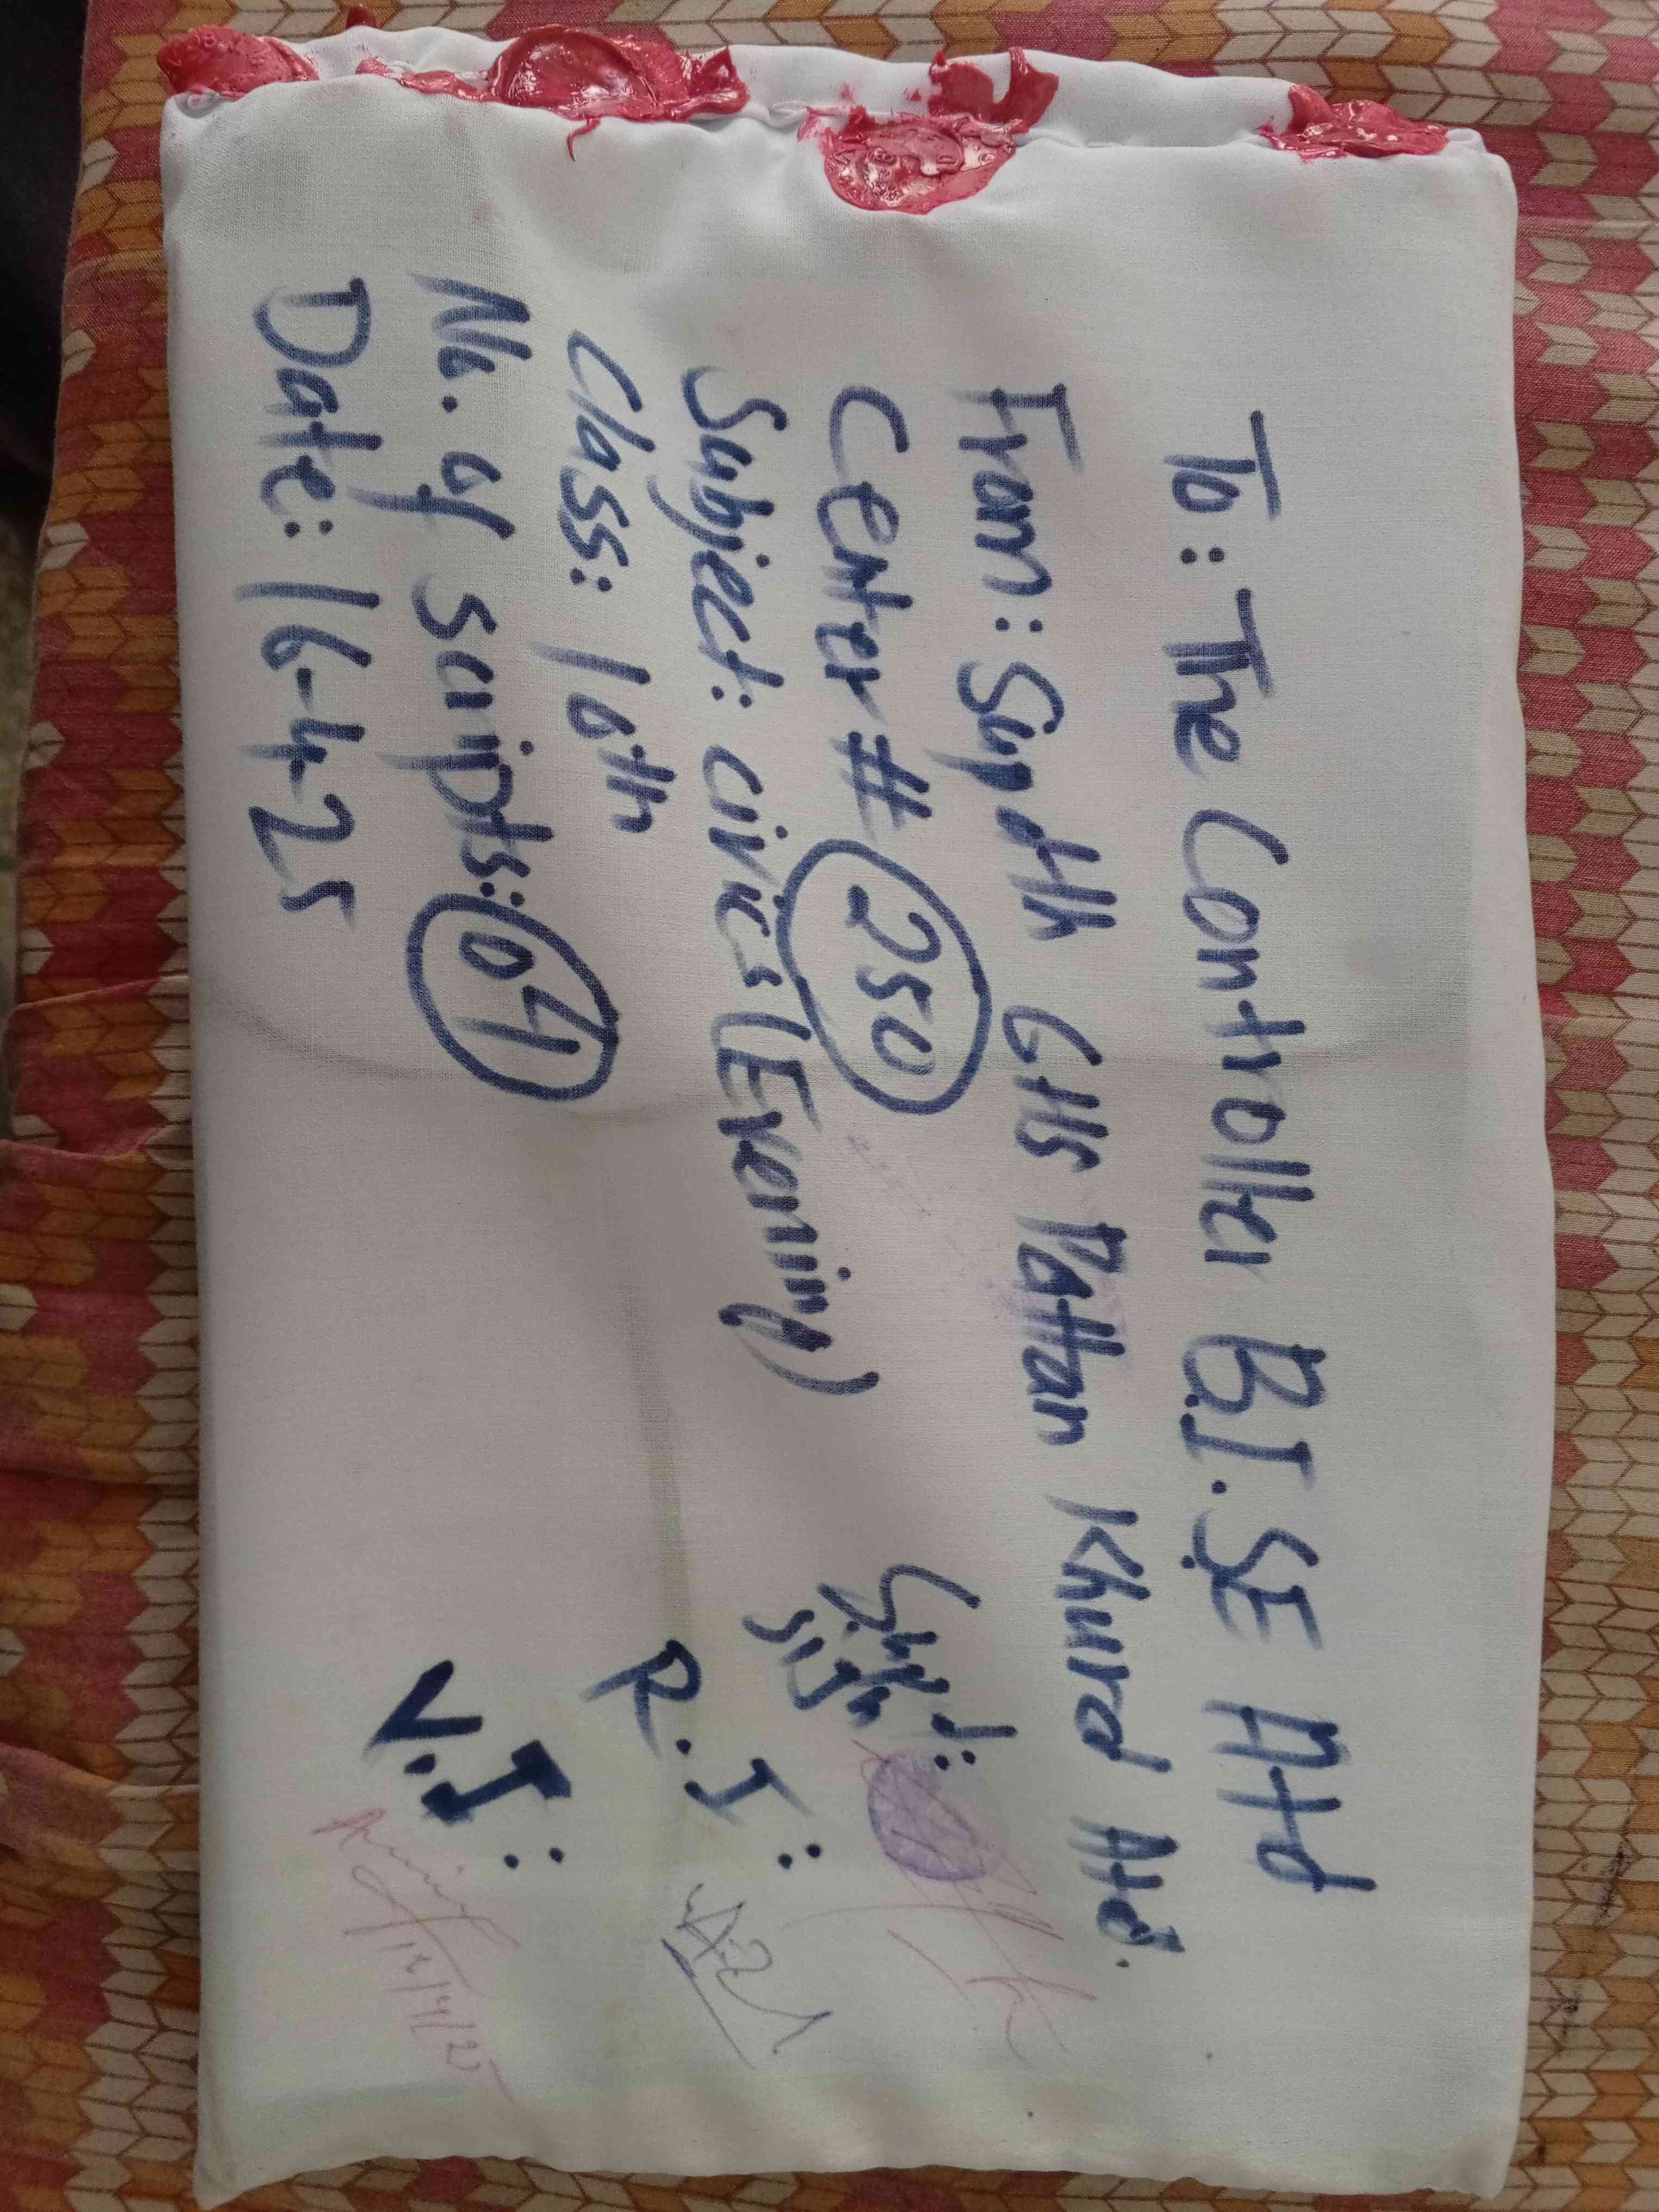 To: The Controller B.I.SE Atd
From: Supdtt GHS Pattan Khurd Atd.
Center # 250
Subject: civics (Evening)
Class: 10th
No. of scripts: 04
Date: 16-4-25
R.I:
V.I:
16/4/25